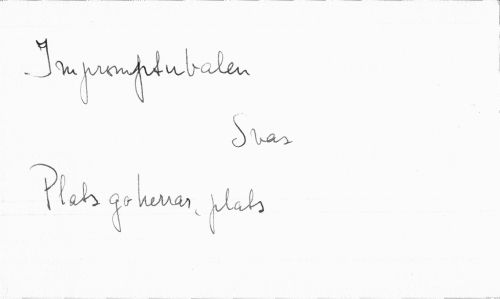 Impromptubalen
Svas
Plats go herrar, plats